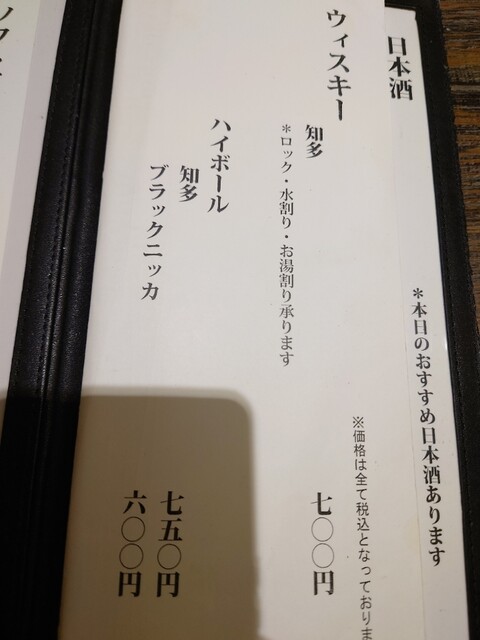 日本酒
*本日のおすすめ日本酒あります
※価格は全て税込となっておりま
ウィスキー
知多
七〇〇円
*ロック・水割り・お湯割り承ります
ハイボール
知多
七五〇円
ブラックニッカ
六〇〇円